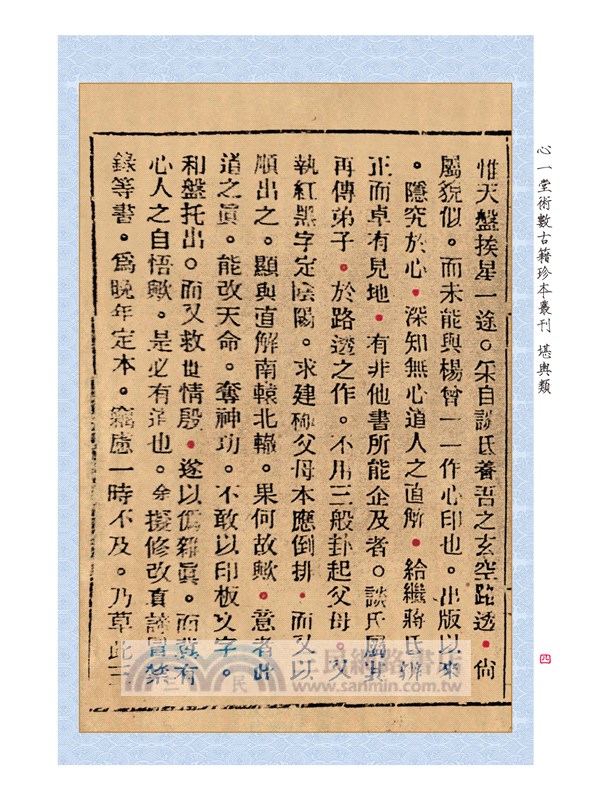 心一堂術數古籍珍本叢刊 堪輿類
四
惟天盤挨星一途。余自談氏養吾之玄空路透。尚
屬貌似。而未能與楊曾一一作心印也。出版以來
。隱究於心。深知無心道人之直解。給繼蔣氏辨
正而卓有見地。有非他書所能企及者。談氏屬其
再傳弟子。於路透之作。不用三般卦起父母。又
執紅黑字定陰陽。求建 父母本應倒排。而又以
順出之。顯與直解南轅北轍。果何故歟。意者此
道之眞。能改天命。奪神功。不敢以印板文字。
和盤托出。而又救世情殷。遂以僞雜眞。而冀有
心人之自悟歟。是必有道也。余擬修改眞 禁
錄等書。爲晚年定本。竊慮一時不及。乃草此三
三民網路書店
www.sanmin.com.tw
三民